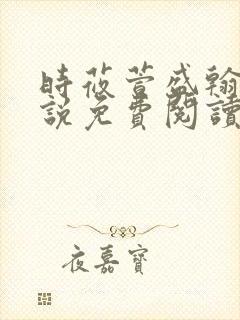 時莜萱盛翰
說免費閱讀
夜嘉寶